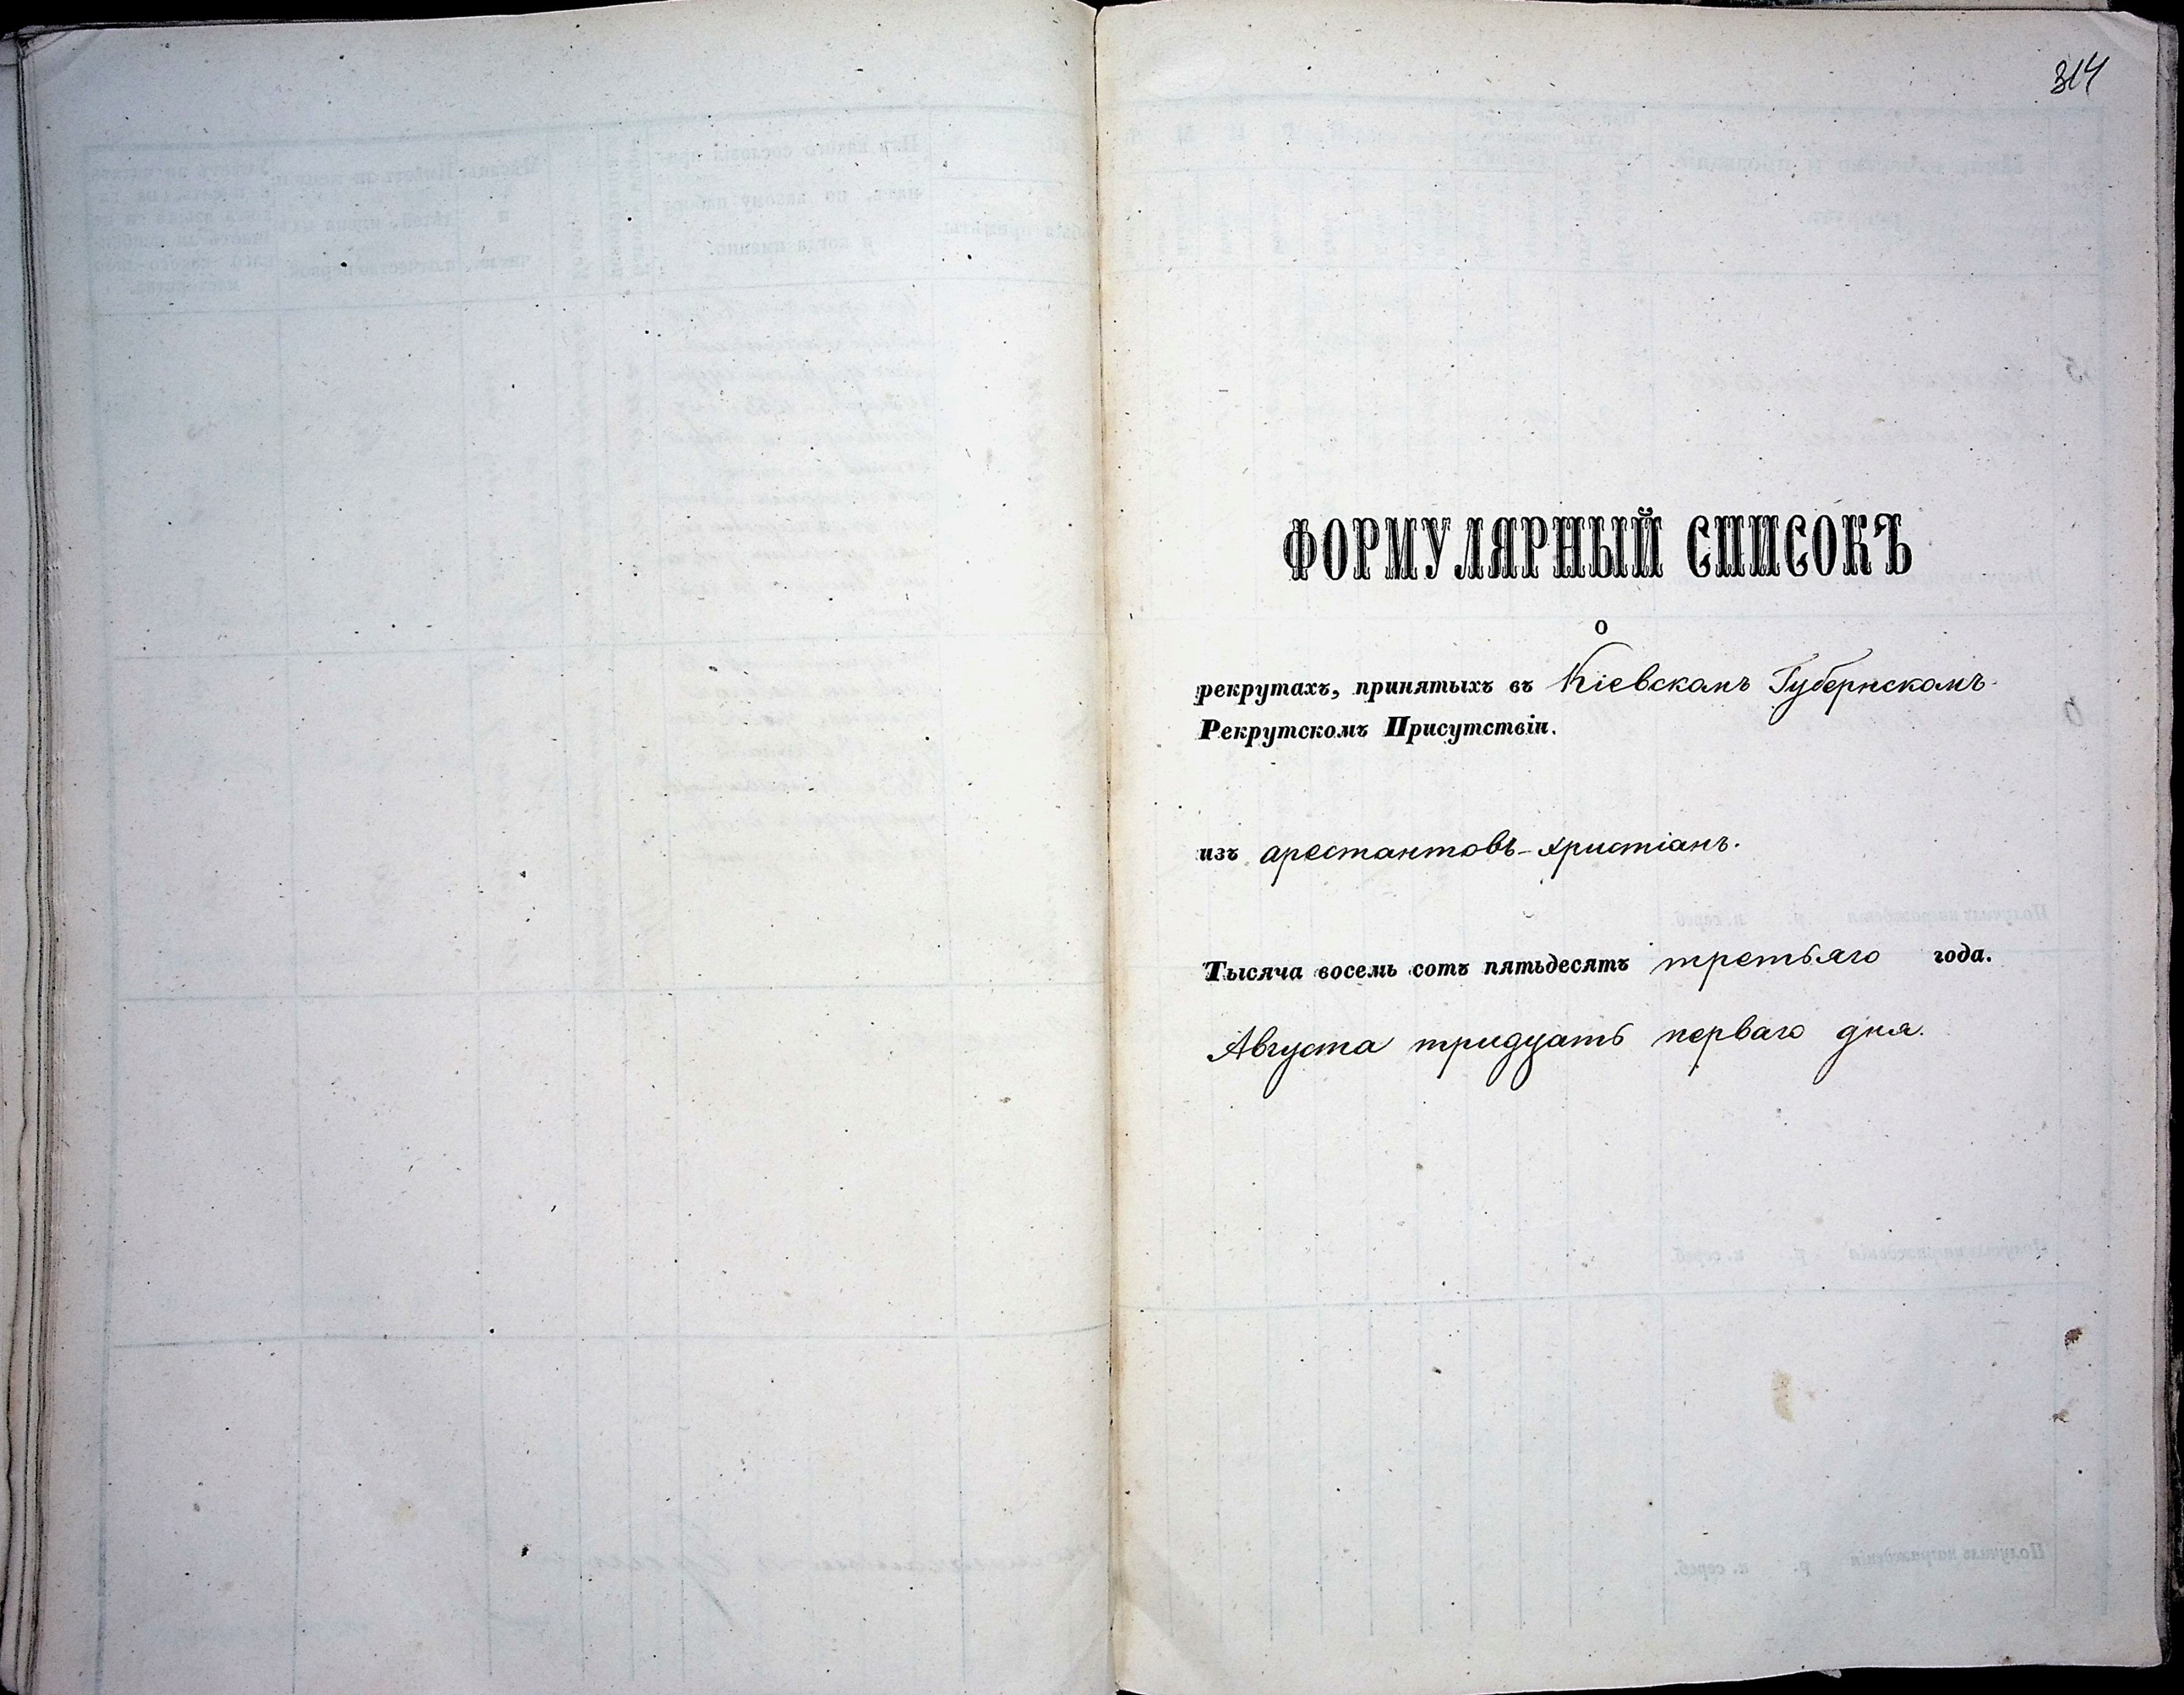 314
ФОРМУЛЯРНЫЙ СПИСОКЪ
о
рекрутахъ, принятыхъ въ Кіевскомъ Губернскомъ
Рекрутскомъ Присутствіи.
изъ арестантовъ-христіанъ.
Тысяча восемь сотъ пятьдесятъ третьяго года.
Августа тридцать перваго дня.